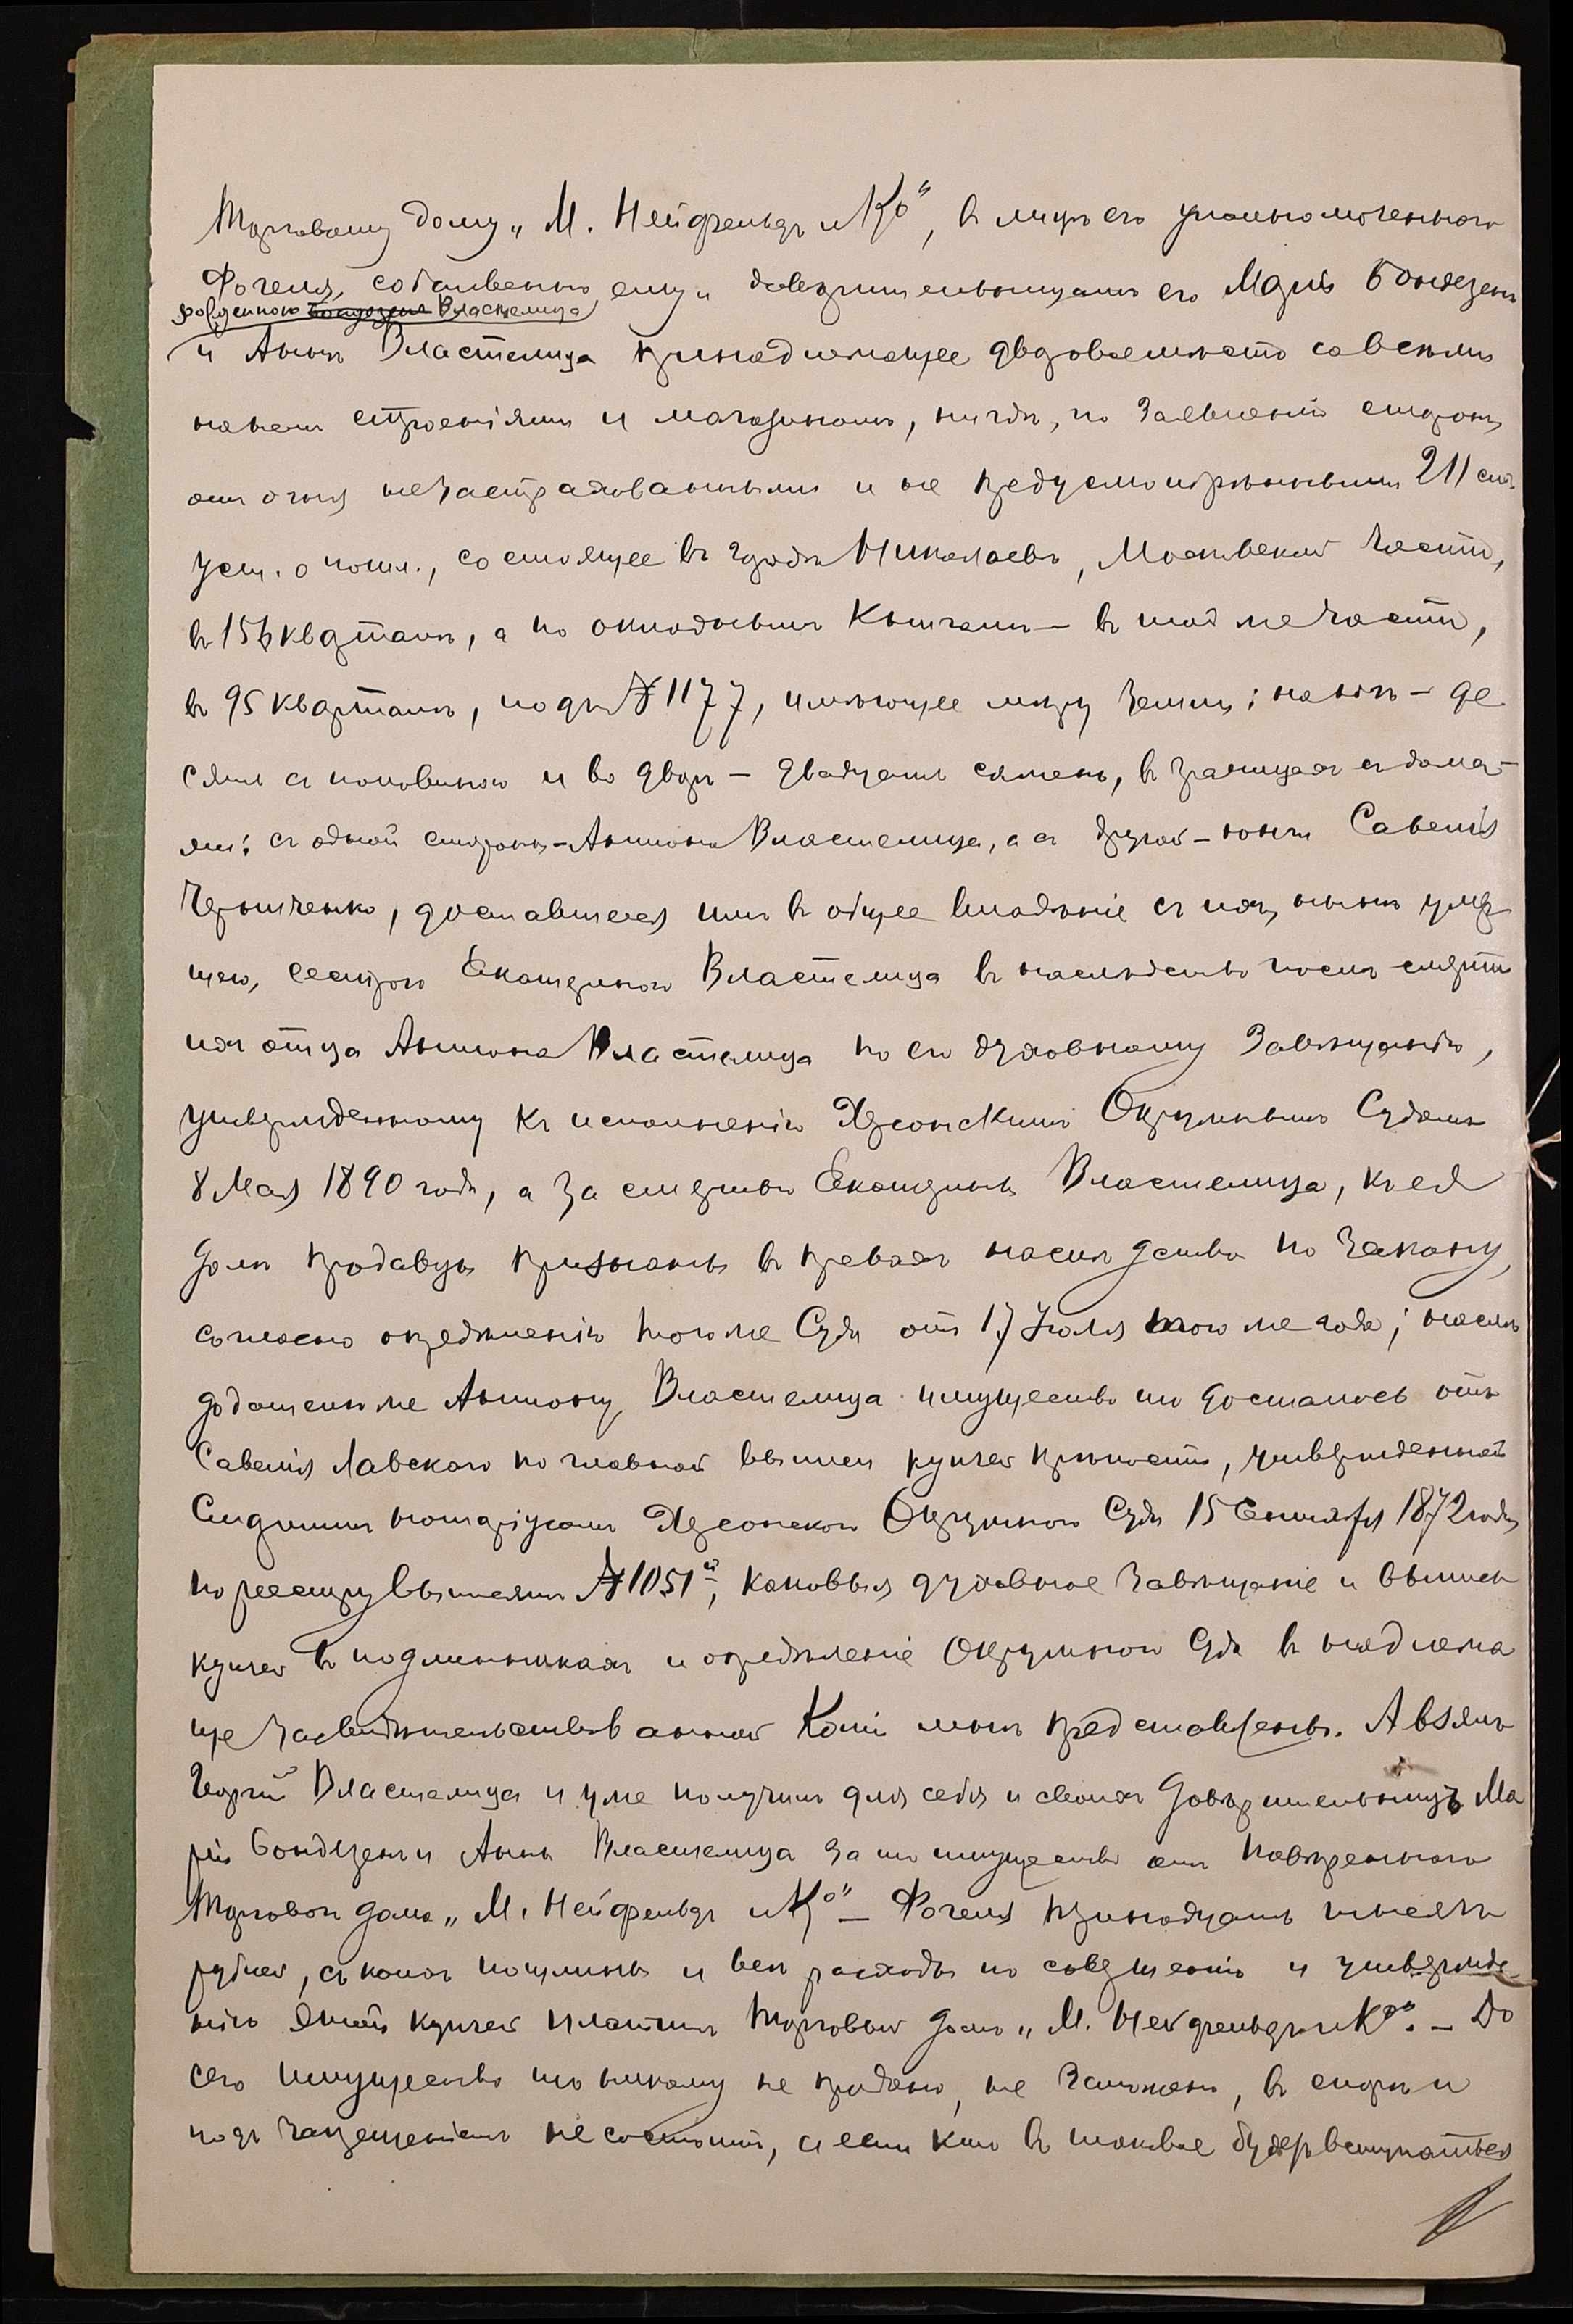 Торговому дому „М. Нейфельдъ и Ко“, въ лицѣ его уполномоченнаго
Фогеля, собственно ему и довѣрительницамъ его Маріи Бондезенъ
рожденною Бондезенъ Властелица
и Аннѣ Властелица принадлежащее дворовое мѣсто со всѣми
на немъ строеніями и магазиномъ, нигдѣ, по заявленію сторонъ,
отъ огня незастрахованными и не предусмотрѣнными 211 ст.
уст. о пошл., состоящее въ городѣ Николаевѣ, Московской части,
въ 156 кварталѣ, а по окладнымъ книгамъ – въ той же части,
въ 95 кварталѣ, подъ № 1177, имѣющее мѣру земли: на
сяти съ половиною и во дворъ – двадцать саженъ, въ границахъ съ дома-
ми: съ одной стороны – Антона Властелица, а съ другой – Савелія
Черниченко, доставшееся имъ въ общее владѣніе съ ихъ, нынѣ умер
шею, сестрою Екатериною Властелица въ наслѣдство послѣ смерти
ихъ отца Антона Властелица по его духовному завѣщанію,
утвержденному къ исполненію Херсонскимъ Окружнымъ Судомъ
8 Мая 1890 года, а за смертью Екатерины Властелица, къ ея
долѣ продавцы признаны въ правахъ наслѣдства по закону,
согласно опредѣленію того же Суда отъ 17 Іюля того же года; наслѣ
додателю же Антону Властелица имущество это досталось отъ
Савелія Лавскаго по главной выписи купчей крѣпости, утвержденной
Старшимъ нотаріусомъ Херсонскаго Окружнаго Суда 15 Сентября 1872 года,
по реестру выписямъ № 1051й, каковыя духовное завѣщаніе и выпись
купчей въ подлинникахъ и опредѣленіе Окружнаго Суда въ надлежа
ще засвидѣтельствованной копіи мнѣ представлены. А взялъ
Георгій Властелица и уже получилъ для себя и своихъ довѣрительницъ Ма
ріи Бондезенъ и Анны Властелица за это имущество отъ повѣреннаго
Торговаго дома „М. Нейфельдъ и Ко“ – Фогеля тринадцать тысячъ
рублей, съ коихъ пошлины и всѣ расходы по совершенію и утвержде-
нію этой купчей платитъ Торговый домъ „М. Нейфельдъ и Ко“. – До
сего имущество это никому не продано, не заложено, въ спорѣ и
подъ запрещеніемъ не состоитъ, а если кто въ таковое будетъ вступаться